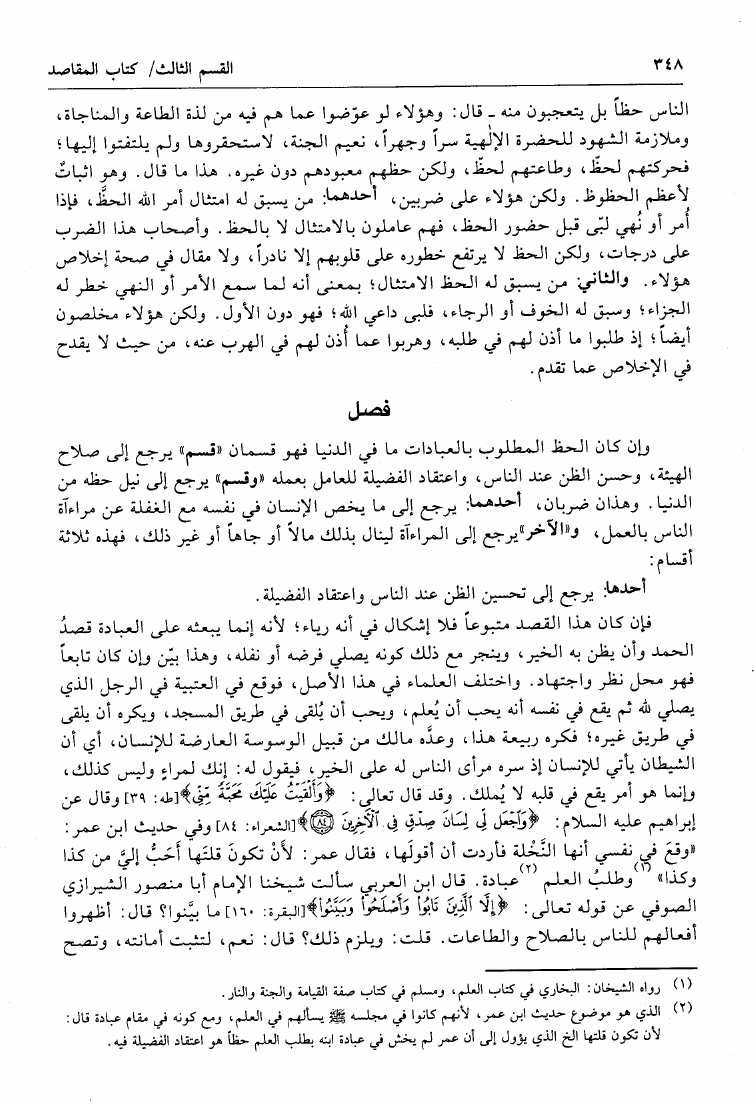 ٣٤٨
القسم الثالث/ كتاب المقاصد
الناس حظاً بل يتعجبون منه ـ قال: وهؤلاء لو عوّضوا عما هم فيه من لذة الطاعة والمناجاة،
وملازمة الشهود للحضرة الإلٰهية سراً وجهراً، نعيم الجنة، لاستحقروها ولم يلتفتوا إليها؛
فحركتهم لحظّ، وطاعتهم لحظّ، ولكن حظهم معبودهم دون غيره. هذا ما قال. وهو اثباتٌ
لأعظم الحظوظ. ولكن هؤلاء على ضربين، أحدهما: من يسبق له امتثال أمر الله الحظَّ، فإذا
أُمر أو نُهي لبّى قبل حضور الحظ، فهم عاملون بالامتثال لا بالحظ. وأصحاب هذا الضرب
على درجات، ولكن الحظ لا يرتفع خطوره على قلوبهم إلا نادراً، ولا مقال في صحة إخلاص
هؤلاء. والثاني: من يسبق له الحظ الامتثال؛ بمعنى أنه لما سمع الأمر أو النهي خطر له
الجزاء؛ وسبق له الخوف أو الرجاء، فلبى داعي الله؛ فهو دون الأول. ولكن هؤلاء مخلصون
أيضاً؛ إذ طلبوا ما أذن لهم في طلبه، وهربوا عما أُذن لهم في الهرب عنه، من حيث لا يقدح
في الإخلاص عما تقدم.
فصل
وإن كان الحظ المطلوب بالعبادات ما في الدنيا فهو قسمان «قسم» يرجع إلى صلاح
الهيئة، وحسن الظن عند الناس، واعتقاد الفضيلة للعامل بعمله «وقسم» يرجع إلى نيل حظه من
الدنيا. وهذان ضربان، أحدهما: يرجع إلى ما يخص الإنسان في نفسه مع الغفلة عن مراءآة
الناس بالعمل، و«الآخر» يرجع إلى المراءآة لينال بذلك مالاً أو جاهاً أو غير ذلك، فهذه ثلاثة
أقسام:
أحدها: يرجع إلى تحسين الظن عند الناس واعتقاد الفضيلة.
فإن كان هذا القصد متبوعاً فلا إشكال في أنه رياء؛ لأنه إنما يبعثه على العبادة قصدُ
الحمد وأن يظن به الخير، وينجر مع ذلك كونه يصلي فرضه أو نفله، وهذا بيّن وإن كان تابعاً
فهو محل نظر واجتهاد. واختلف العلماء في هذا الأصل، فوقع في العتبية في الرجل الذي
يصلي لله ثم يقع في نفسه أنه يحب أن يُعلم، ويحب أن يُلقى في طريق المسجد، ويكره أن يلقى
في طريق غيره؛ فكره ربيعة هذا، وعدَّه مالك من قبيل الوسوسة العارضة للإنسان، أي أن
الشيطان يأتي للإنسان إذ سره مرأى الناس له على الخير، فيقول له: إنك لمراءٍ وليس كذلك،
وإنما هو أمر يقع في قلبه لا يُملك. وقد قال تعالى: ﴿وَأَلْقَيْتُ عَلَيْكَ مَحَبَّةً مِّنِّي﴾[طه: ٣٩] وقال عن
إبراهيم عليه السلام: ﴿وَاجْعَل لِّي لِسَانَ صِدْقٍ فِي الْآخِرِينَ ۝٨٤﴾[الشعراء: ٨٤] وفي حديث ابن عمر:
«وقعَ في نفسي أنها النَّخْلة فأردت أن أقولَها، فقال عمر: لأنْ تكونَ قلتَها أَحَبُّ إليَّ من كذا
وكذا»(١) وطلبُ العلم(٢) عبادة. قال ابن العربي سألت شيخنا الإمام أبا منصور الشيرازي
الصوفي عن قوله تعالى: ﴿إِلَّا الَّذِينَ تَابُوا وَأَصْلَحُوا وَبَيَّنُوا﴾[البقرة: ١٦٠] ما بيَّنوا؟ قال: أظهروا
أفعالهم للناس بالصلاح والطاعات. قلت: ويلزم ذلك؟ قال: نعم، لتثبت أمانته، وتصح
(١) رواه الشيخان: البخاري في كتاب العلم، ومسلم في كتاب صفة القيامة والجنة والنار.
(٢) الذي هو موضوع حديث ابن عمر، لأنهم كانوا في مجلسه ﷺ يسألهم في العلم، ومع كونه في مقام عبادة قال:
لأن تكون قلتها الخ الذي يؤول إلى أن عمر لم يخش في عبادة ابنه بطلب العلم حظاً هو اعتقاد الفضيلة فيه.